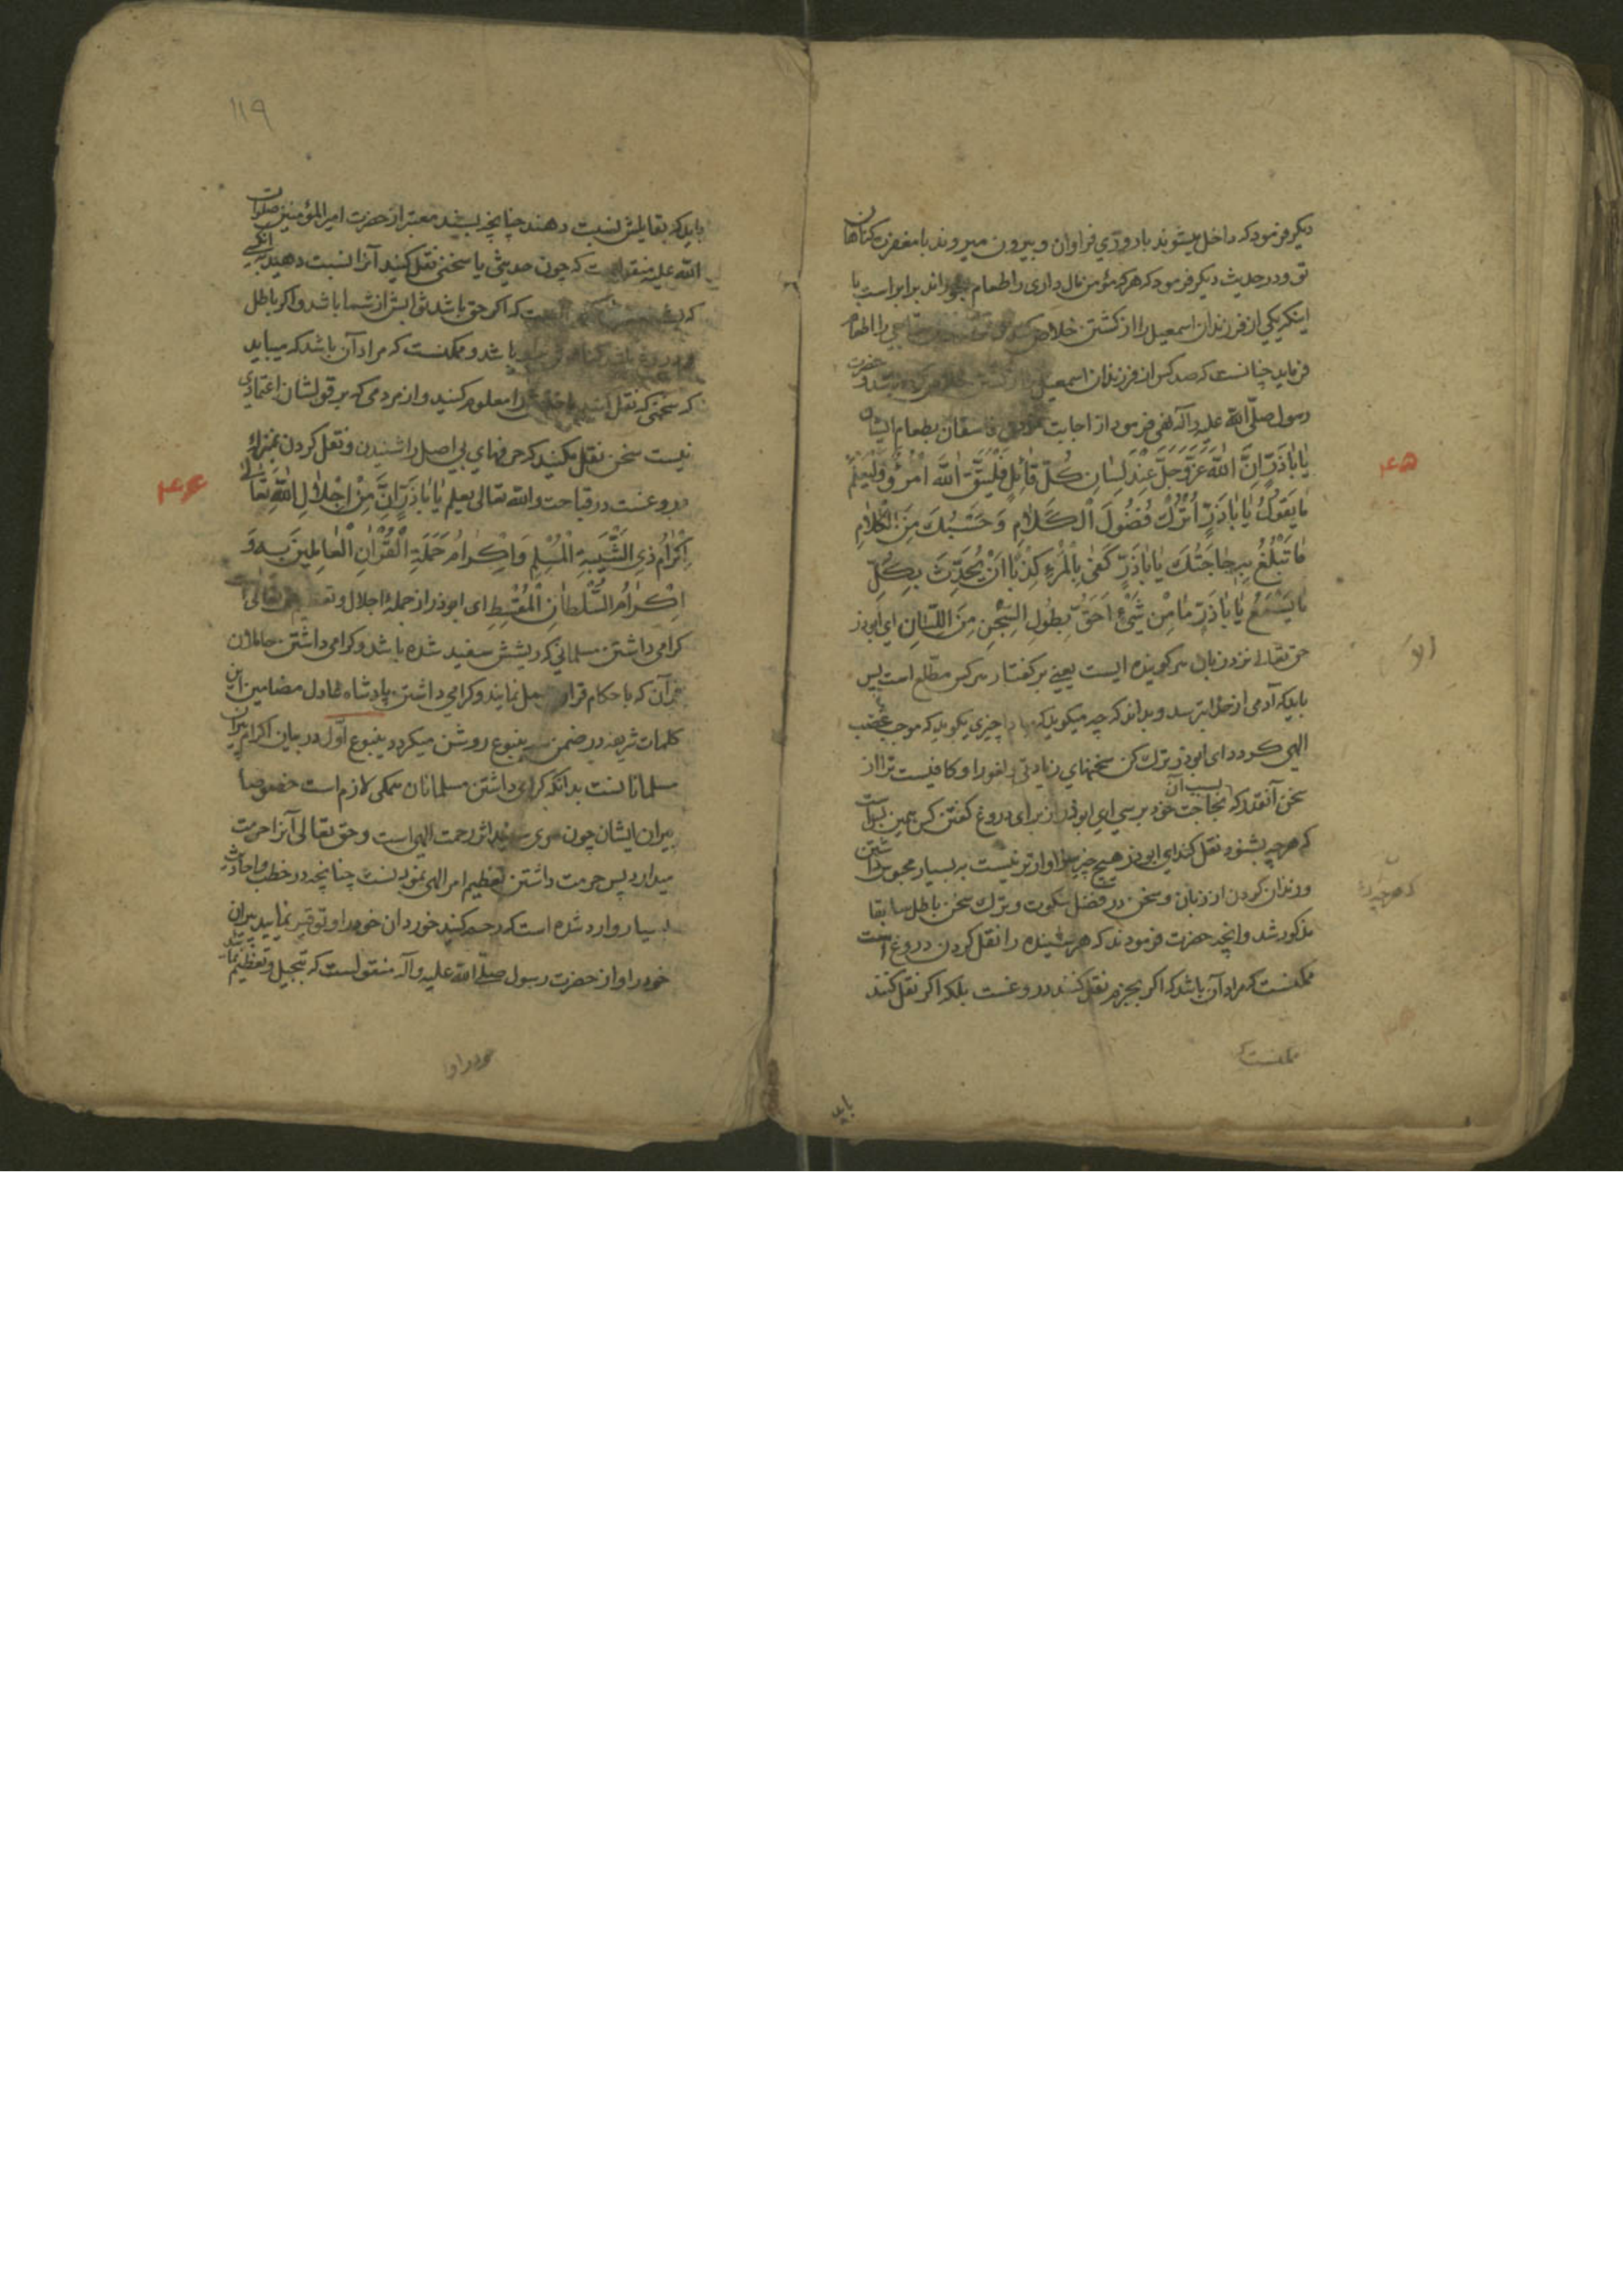 دیکر فرمود که داخل میشوند با روزي فراوان و بیرون میروند با مغفرت کناهان
تو و در حدیث دیکر فرمود که هر که مؤمن مال داری را اطعام برابر است با
اینکه یکي از فرزندان اسمعیل را از کشتن خلاص را اطعام
فرماید چنانست که صد کس از فرزندان اسمعیل حضرت
رسول صلّی الله علیه وآله نهی فرمود از اجابت فاسقان بطعام ایشان
یٰا اَبٰاذَرٍّ اِنَّ اللّٰهَ عَزَّوَجَلَّ عِنْدَ لِسٰانِ کُلِّ قٰائِلٍ فَلْیَتَّقِ اللّٰهَ امْرُؤٌ وَلْیَعْلَمْ
مٰا یَقُولُ یٰا اَبٰاذَرٍّ اُتْرُكْ فُضُولَ الْکَلٰامِ وَحَسْبُكَ مِنَ الْکَلٰامِ
مٰا تَبْلُغُ بِهِ حٰاجَتَكَ یٰا اَبٰاذَرٍّ کَفیٰ بِالْمَرْءِ کِذْبًا اَنْ یُحَدِّثَ بِکُلِّ
مٰا یَسْمَعُ یٰا اَبٰاذَرٍّ مٰا مِنْ شَیْءٍ اَحَقُّ بِطُولِ السِّجْنِ مِنَ اللِّسٰانِ ای ابوذر
حق تعالی نزد زبان هر کوینده ایست یعنے بر کفتار هر کس مطّلع است پس
باید که آدمی از خدا بترسد و بداند که چه میکوید که چیزی بکوید که موجب غضب
الهی کردد ای ابوذر ترك کن سخنهاي زیادتی و لغو را و کافیست ترا از
سخن آنقدر که بسبب آن بحاجت خود برسي اي ابوذر از برای دروغ کفتن کس همین بس است
که هر چه بشنود نقل کند اي ابوذر هیچ چیز سزاوارتر نیست به بسیار محبوس داشتن
و زندان کردن از زبان و سخن در فضل سکوت و ترك سخن باطل سابقا
مذکور شد و انچه حضرت فرمودند که هر شنیده را نقل کردن دروغ است
ممکنست که مراد آن باشد که اکر بجزم نقل کنند دروغست بلکه اکر نقل کنند
ممکنست که
باید
۴۵
ابو
که هر چیز
۱۱۹
باید که بقایلش نسبت دهند چنانچه بسند معتبر از حضرت امیر المؤمنین صلوات
الله علیه منقولست که چون حدیثی یا سخنی نقل کنید آنرا نسبت دهید بانکسے
که که اکر حق باشد ثوابش از شما باشد و اکر باطل
و دروغ باشد باشد و ممکنست که مراد آن باشد که میباید
که سخنی که نقل کنید را معلوم کنید و از مردمی که بر قولشان اعتمادی
نیست سخن نقل مکنید که حرفهاي بي اصل را شنیدن و نقل کردن بمنزلهٔ
دروغست در قباحت و الله تعالی یعلم یٰا اَبٰاذَرٍّ اِنَّ مِنْ اِجْلٰالِ اللّٰهِ تَعٰالیٰ
اِکْرٰامُ ذِي الشَّیْبَةِ الْمُسْلِمِ وَاِکْرٰامُ حَمَلَةِ الْقُرْاٰنِ الْعٰامِلِینَ بِهِ وَ
اِکْرٰامُ السُّلْطٰانِ الْمُقْسِطِ ای ابوذر از جملهٔ اجلال و تعظیم حق تعالی است
کرامی داشتن مسلمانی که ریشش سفید شده باشد و کرامی داشتن حاملان
قرآن که باحکام قرآن عمل نمایند و کرامی داشتن پادشاه عادل مضامین این
کلمات شریفه در ضمن سه ینبوع روشن میکردد ینبوع اوّل در بیان اکرام پیران
مسلمانانست بدانکه کرامی داشتن مسلمانان همکی لازم است خصوصا
پیران ایشان چون موی سفید اثر رحمت الهی است و حق تعالی آنرا حرمت
میدارد پس حرمت داشتن تعظیم امر الهی نمودنست چنانچه در خطب و احادیث
بسیار وارد شده است که رحم کنید خوردان خود را و توقیر نمایید پیران
خود را و از حضرت رسول صلّے الله علیه وآله منقولست که تبجیل و تعظیم نمایید
خود را و از
۴۶